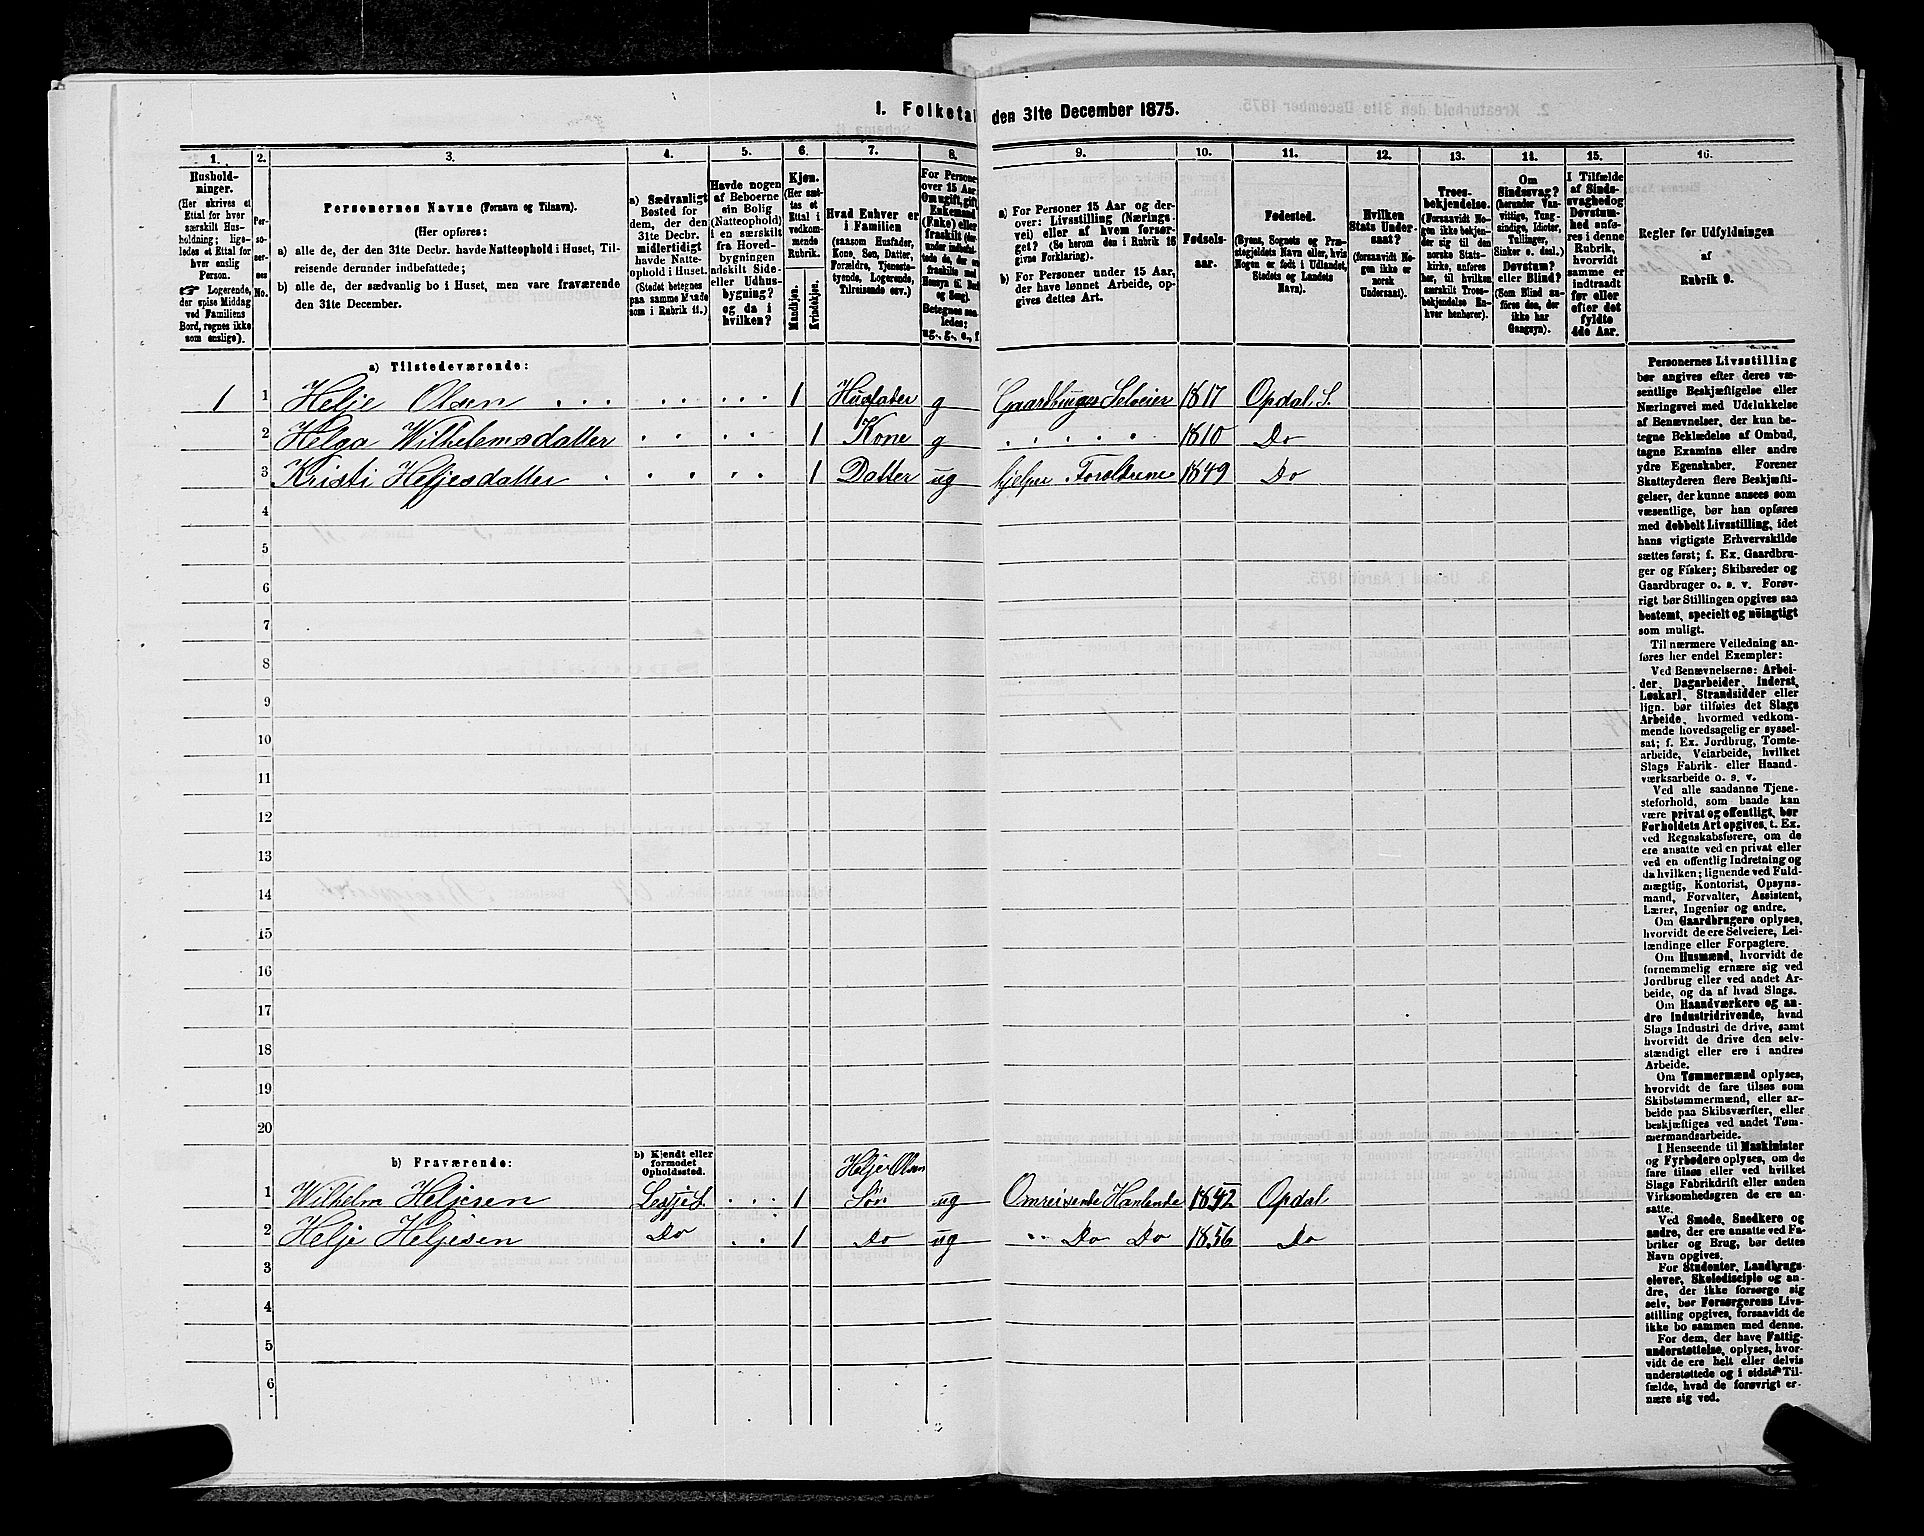 1. Folketal
den 31te December 1875.
1. 2. 3. 4. 5. 6. 7. 8. 9. 10. 11. 12. 13. 14. 15. 16.
Hushold-
ninger.
(Her skrives et
Ettal for hver
særskilt Hus-
holdning; lige-
ledes et Ettal for
hver enslig
Person.
☞ Logerende,
der spise Middag
ved Familiens
Bord, regnes ikke
som enslige).
Per-
so-
ner-
nes
No.
Personernes Navne (Fornavn og Tilnavn).
(Her opføres:
a) alle de, der den 31te Decbr. havde Natteophold i Huset, Til-
reisende derunder indbefattede;
b) alle de, der sædvanlig bo i Huset, men vare fraværende
den 31te December.
a) Sædvanligt
Bosted for
dem, der den
31te Decbr.
midlertidigt
havde Natte-
ophold i Huset.
(Stedet betegnes
paa samme Maade
som i Rubrik 11.)
Havde nogen
af Beboerne
ein Bolig
(Natteophold)
i en særskilt
fra Hoved-
bygningen
adskilt Side-
eller Udhus-
bygning?
og da i
hvilken?
Kjøn.
(Her sæt-
tes et
Ettal i
vedkom-
mende
Rubrik.
Mandkjøn.
Kvindekjøn.
Hvad Enhver er
i Familien
(saasom Husfader,
Kone, Søn, Datter,
Forældre, Tjeneste-
tyende, Logerende,
Tilreisende osv.)
For Personer
over 15 Aar:
Om ugift, gift,
Enkemand
(Enke) eller
fraskilt
Betegnes saa-
ledes:
ug., g., e., f.
a) For Personer 15 Aar og der-
over: Livsstilling (Nærings-
vei) eller af hvem forsør-
get? (Se herom den i Rubrik 16
givne Forklaring).
b) For Personer under 15 Aar,
der have lønnet Arbeide, op-
gives dettes Art.
Fødsels-
aar.
Fødested.
(Byens, Sognets og Præ-
stegjeldets Navn eller, hvis
Nogen er født i Udlandet,
Stedets og Landets
Navn).
Hvilken
Stats Under-
saat?
(forsaavidt No-
gen ikke er
norsk
Undersaat).
Troes-
bekjendelse.
(Forsaavidt No-
gen ikke bekjen-
der sig til den
norske Stats-
kirke, anføres
her, til hvilken
særskilt Troes-
bekjendelse En-
hver henhører).
Om
Sindssvag?
(herunder Van-
vittige, Tung-
sindige, Idioter,
Tullinger,
Sinker o. desl.).
Døvstum?
eller Blind?
(Som Blind an-
føres den, der
ikke har
Gangsyn).
I Tilfælde
af Sinds-
svaghed og
Døvstum-
hed anfø-
res i denne
Rubrik,
hvorvidt
samme er
indtraadt
før eller
efter det
fyldte
4de Aar.
Regler for Udfyldningen
af
Rubrik 9.
a) Tilstedeværende:
1 1 Helje Olsen 1 Husfader g Gaardbruger Selveier 1817 Opdal S.
2 Helga Wilhelmsdatter 1 Kone g 1810 Do
3 Kristi Heljesdatter 1 Datter ug hjelper Forældrene 1849 Do
4
5
6
7
8
9
10
11
12
13
14
15
16
17
18
19
20
b) Fraværende:
b) Kjendt eller
formodet
Opholdssted.
Helje Olsen
1 Wilhelm Heljesen Lesje S. 1 Søn ug Omreisende Handlende 1842 Opdal
2 Helje Heljesen Do 1 Do ug Do Do 1856 Do
3
4
5
6
Personernes Livsstilling
bør angives efter deres væ-
sentlige Beskjæftigelse eller
Næringsvei med Udelukkelse
af Benævnelser, der kun be-
tegne Beklædelse af Ombud,
tagne Examina eller andre
ydre Egenskaber. Forener
Skatteyderen flere Beskjæfti-
gelser, der kunne ansees som
væsentlige, bør han opføres
med dobbelt Livsstilling, idet
hans vigtigste Erhvervskilde
sættes først; f. Ex. Gaardbru-
ger og Fisker; Skibsreder og
Gaardbruger o. s. v. Forøv-
rigt bør Stillingen opgives saa
bestemt, specielt og nöiagtigt
som muligt.
Til nærmere Veiledning an-
føres her endel Exempler:
Ved Benævnelserne: Arbei-
der, Dagarbeider, Inderst,
Løskarl, Strandsidder eller
lign. bør tilføies det Slags
Arbeide, hvormed vedkom-
mende hovedsagelig er syssel-
sat; f. Ex. Jordbrug, Tomte-
arbeide, Veiarbeide, hvilket
Slags Fabrik- eller Haand-
værksarbeide o. s. v.
Ved alle saadanne Tjene-
steforhold, som baade kan
være privat og offentligt, bør
Forholdets Art opgives, t. Ex.
ved Regnskabsførere, om de
ere ansatte ved en privat eller
ved en offentlig Indretning og
da hvilken; lignende ved Fuld-
mægtig, Kontorist, Opsyns-
mand, Forvalter, Assistent,
Lærer, Ingeniør og andre.
Om Gaardbrugere oplyses,
hvorvidt de ere Selveiere, Lei-
lændinge eller Forpagtere.
Om Husmænd, hvorvidt de
fornemmelig ernære sig ved
Jordbrug eller ved andet Ar-
beide, og da af hvad Slags.
Om Haandværkere og an-
dre Industridrivende, hvad
Slags Industri de drive, samt
hvorvidt de drive den selv-
stændigt eller ere i andres
Arbeide.
Om Tømmermænd oplyses,
hvorvidt de fare tilsøs som
Skibstømmermænd, eller ar-
beide paa Skibsværfter, eller
beskjæftiges ved andet Tøm-
mermandsarbeide.
I Henseende til Maskinister
og Fyrbødere oplyses, om de
fare tilsøs eller ved hvilket
Slags Fabrikdrift eller anden
Virksomhedsgren de ere an-
satte.
Ved Smede, Snedkere og
andre, der ere ansatte ved Fa-
briker og Brug, bør dettes
Navn opgives.
For Studenter, Landbrugs-
elever, Skoledisciple og an-
dre, der ikke forsørge sig
selv, bør Forsørgerens Livs-
stilling opgives, forsaavidt de
ikke bo sammen med denne.
For dem, der have Fattig-
understøttelse, oplyses, hvor-
vidt de ere helt eller delvis
understøttede og i sidste Til-
fælde, hvad de forøvrigt er-
nære sig ved.